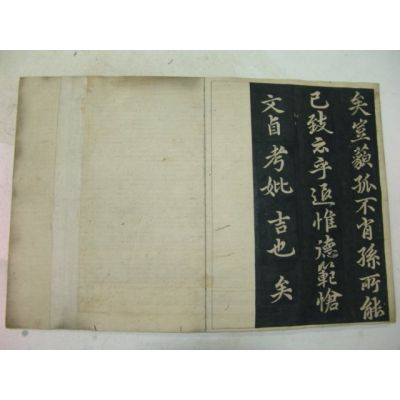 矣豈藐孤不肖孫所能
已致云乎追惟德範愴
文貞考妣吉也矣